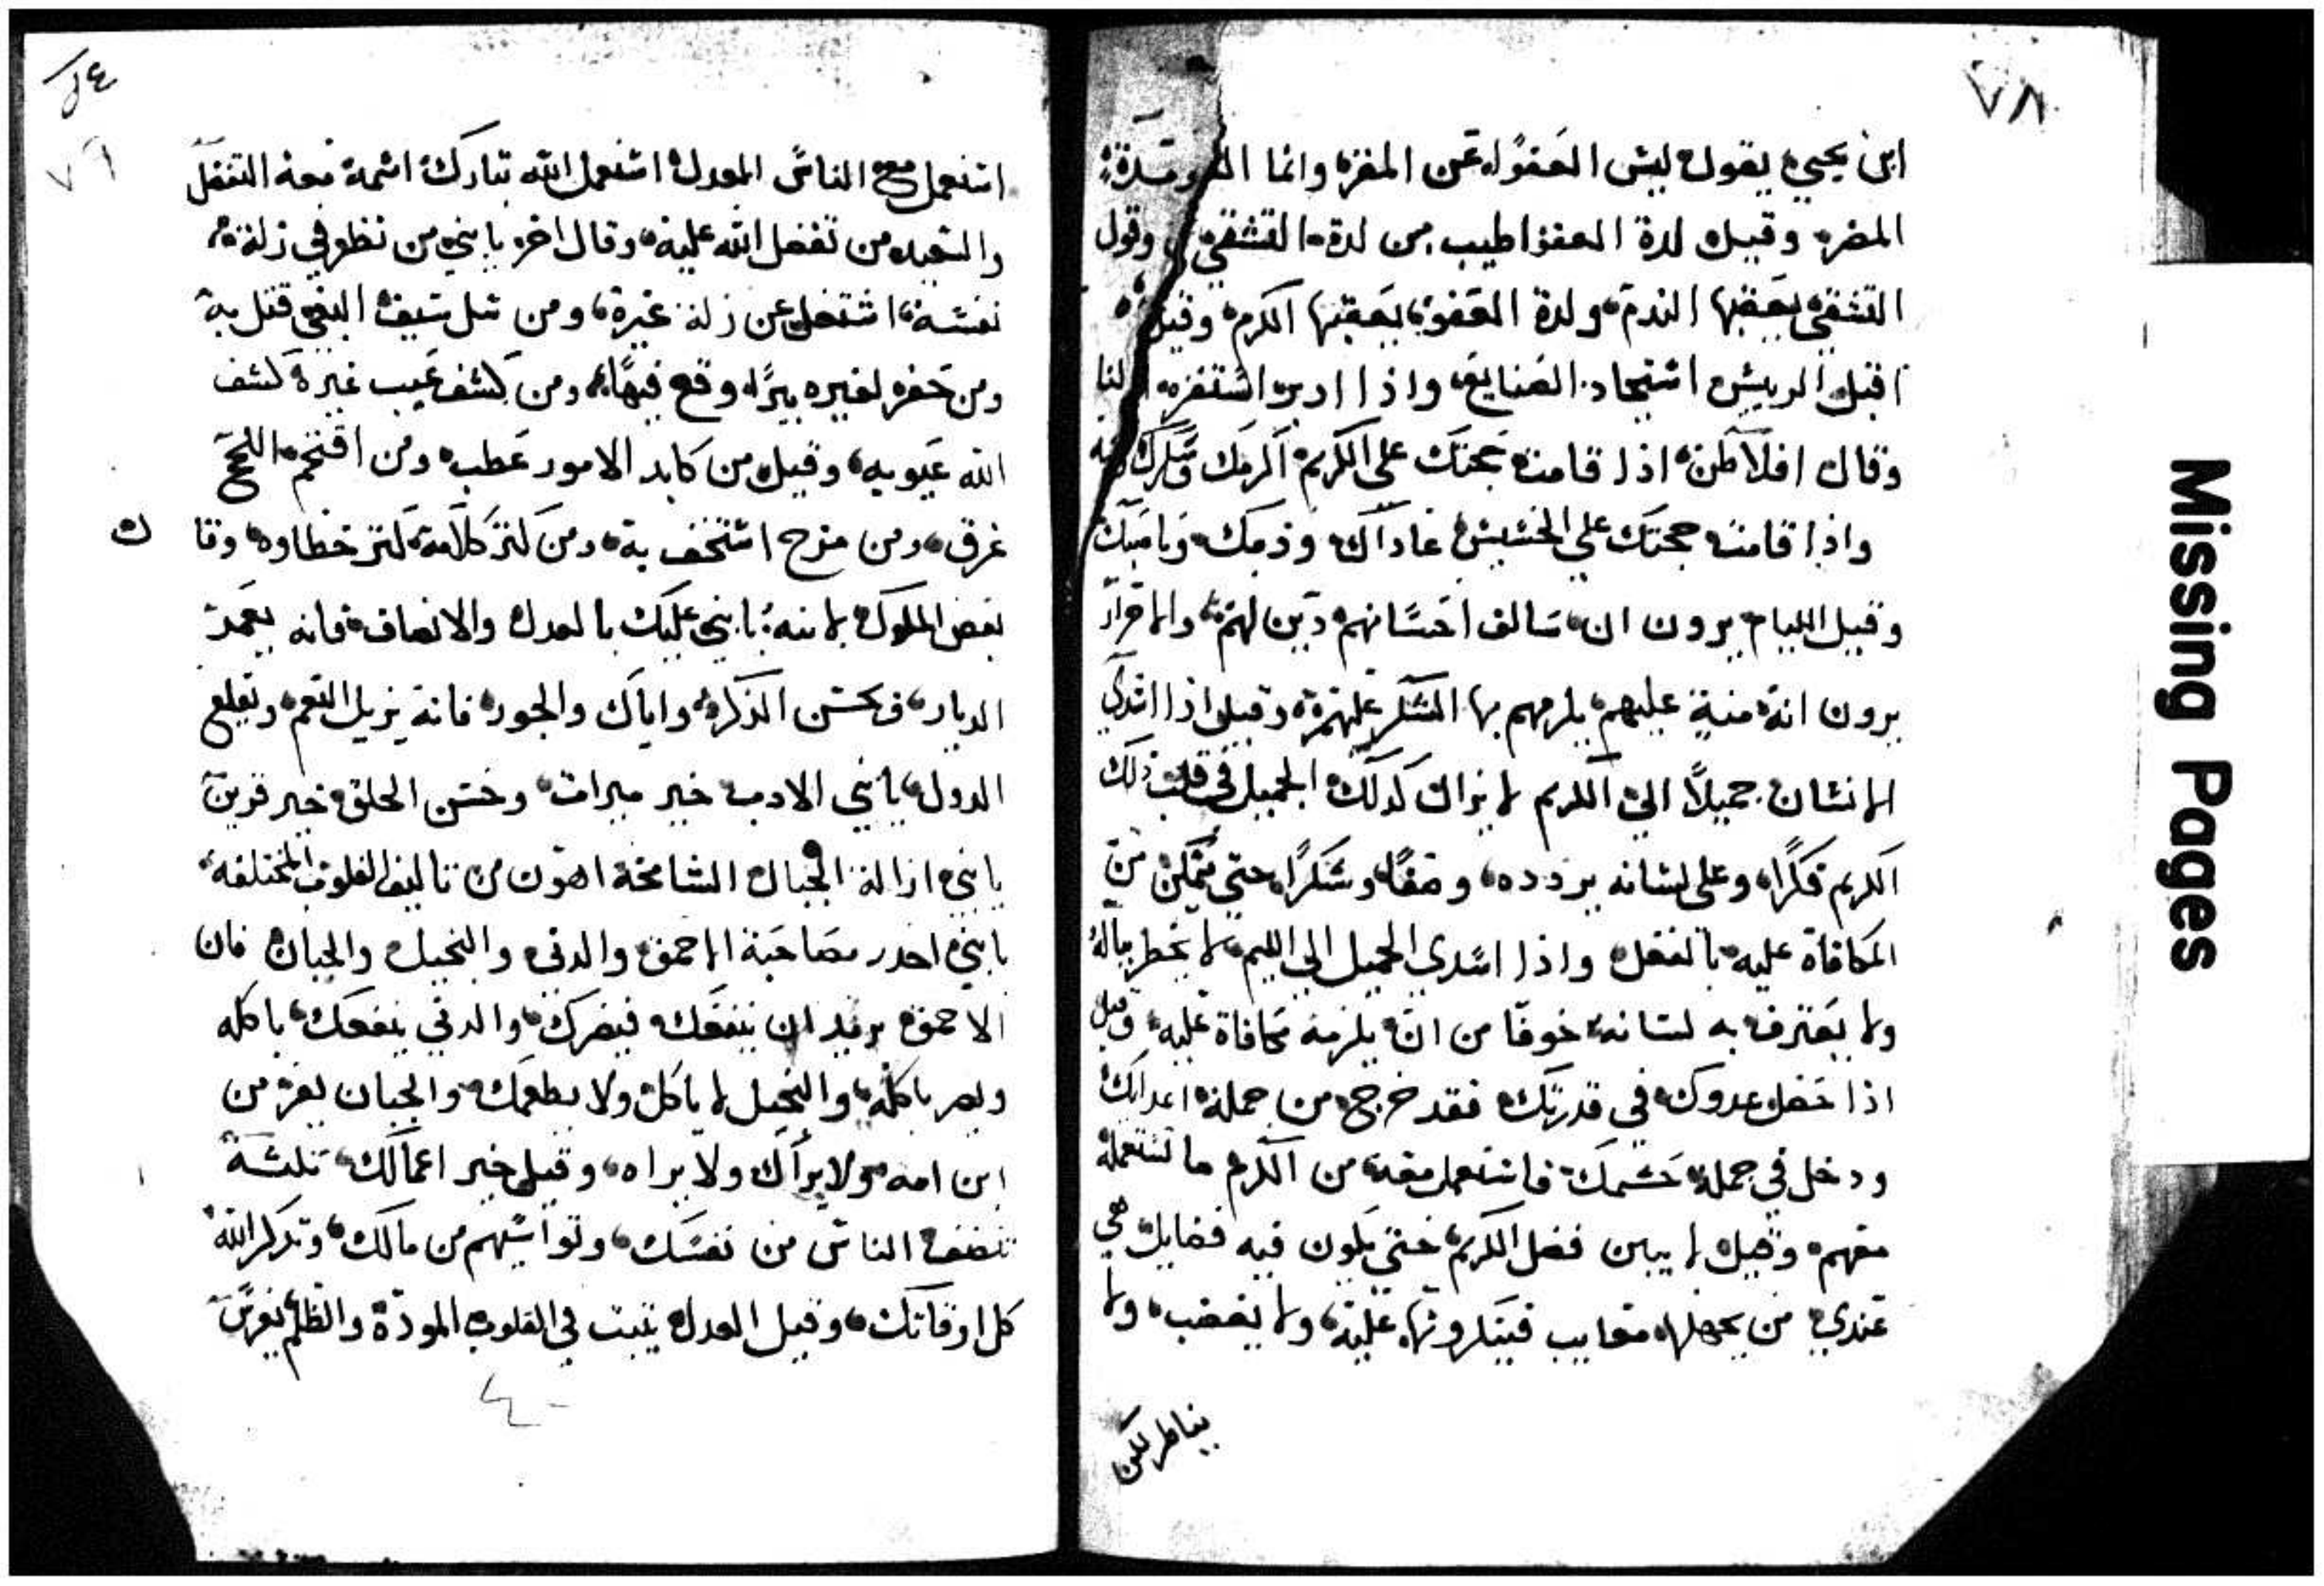 ٧٨
ابن يحيى يقول ليس العفو عن المقر وانما
المضر وقيل لدة العفو اطيب من لدة التشفي وقول
التشفي يعقبها الندم ولدة العفو يعقبها الكرم وقيل
اقبل الرييس استجاد الصنايع واذا ادبر استفزه
وقال افلاطن اذا قامت حجتك على الكريم اكرمك
واذا قامت حجتك على الخسيس عاداك وذمك
وقيل الليام يرون ان سالف احسانهم دين لهم
يرون انه منية عليهم يلزمهم بها الشكر وقيل اذا اسدي
الانسان جميلًا الى الكريم لا يزال كدلك الجميل في قلب ذلك
الكريم فكرًا وعلى لسانه يردده وصفًا وشكرًا حتى يتمكن من
المكافاة عليه بالفضل واذا اسدي الجميل الى الليم لا يخطر بباله
ولا يعترف به لسانه خوفًا من ان يلزمه مكافاة عليه وقيل
اذا حصل عدوك في قدرتك فقد خرج من جملة اعدايك
ودخل في جملة حشمك فاستعمل معه من الكرم ما تستعمله
معهم وقيل لا يبين فضل الكريم حتى يكون فيه فضايل هي
عندي من يجهلها معايب فينكرونها عليه ولا يغضب ولا
يناظر لكن
٧٩
استعمل مع الناس العدل استعمل الله تبارك اسمه معه التفضل
والسعيد من تفضل الله عليه وقال اخر يا بني من نظر في زلة
نفسه اشتغل عن زلة غيره ومن سل سيف البغي قتل به
ومن حفر لغيره بيرًا وقع فيها ومن كشف عيب غيره كشف
الله عيوبه وقيل من كابد الامور عطب ومن اقتحم اللجج
غرق ومن مزح استخف به ومن كثر كلامه كثر خطاوه وقال
بعض الملوك لابنه يا بني عليك بالعدل والانصاف فانه يعمر
الديار ويحسن الذكر واياك والجور فانه يزيل النعم ويقلع
الدول يا بني الادب خير ميراث وحسن الخلق خير قرين
يا بني ازالة الجبال الشامخة اهون من تاليف القلوب المختلفه
يا بني احدر مصاحبة الاحمق والدني والبخيل والجبان فان
الاحمق يريد ان ينفعك فيضرك والدني ينفعك باكله
ويضر باكله والبخيل لا ياكل ولا يطعمك والجبان يفر من
ابن امه ولا يراك ولا يراه وقيل خير اعمالك ثلثة
تنصف الناس من نفسك وتواسيهم من مالك وتدكر الله
كل اوقاتك وقيل العدل يثبت في القلوب المودة والظلم يغرس
Missing Pages